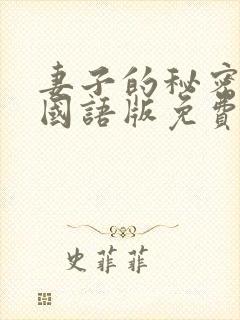 妻子的秘密
國語版免費
史菲菲